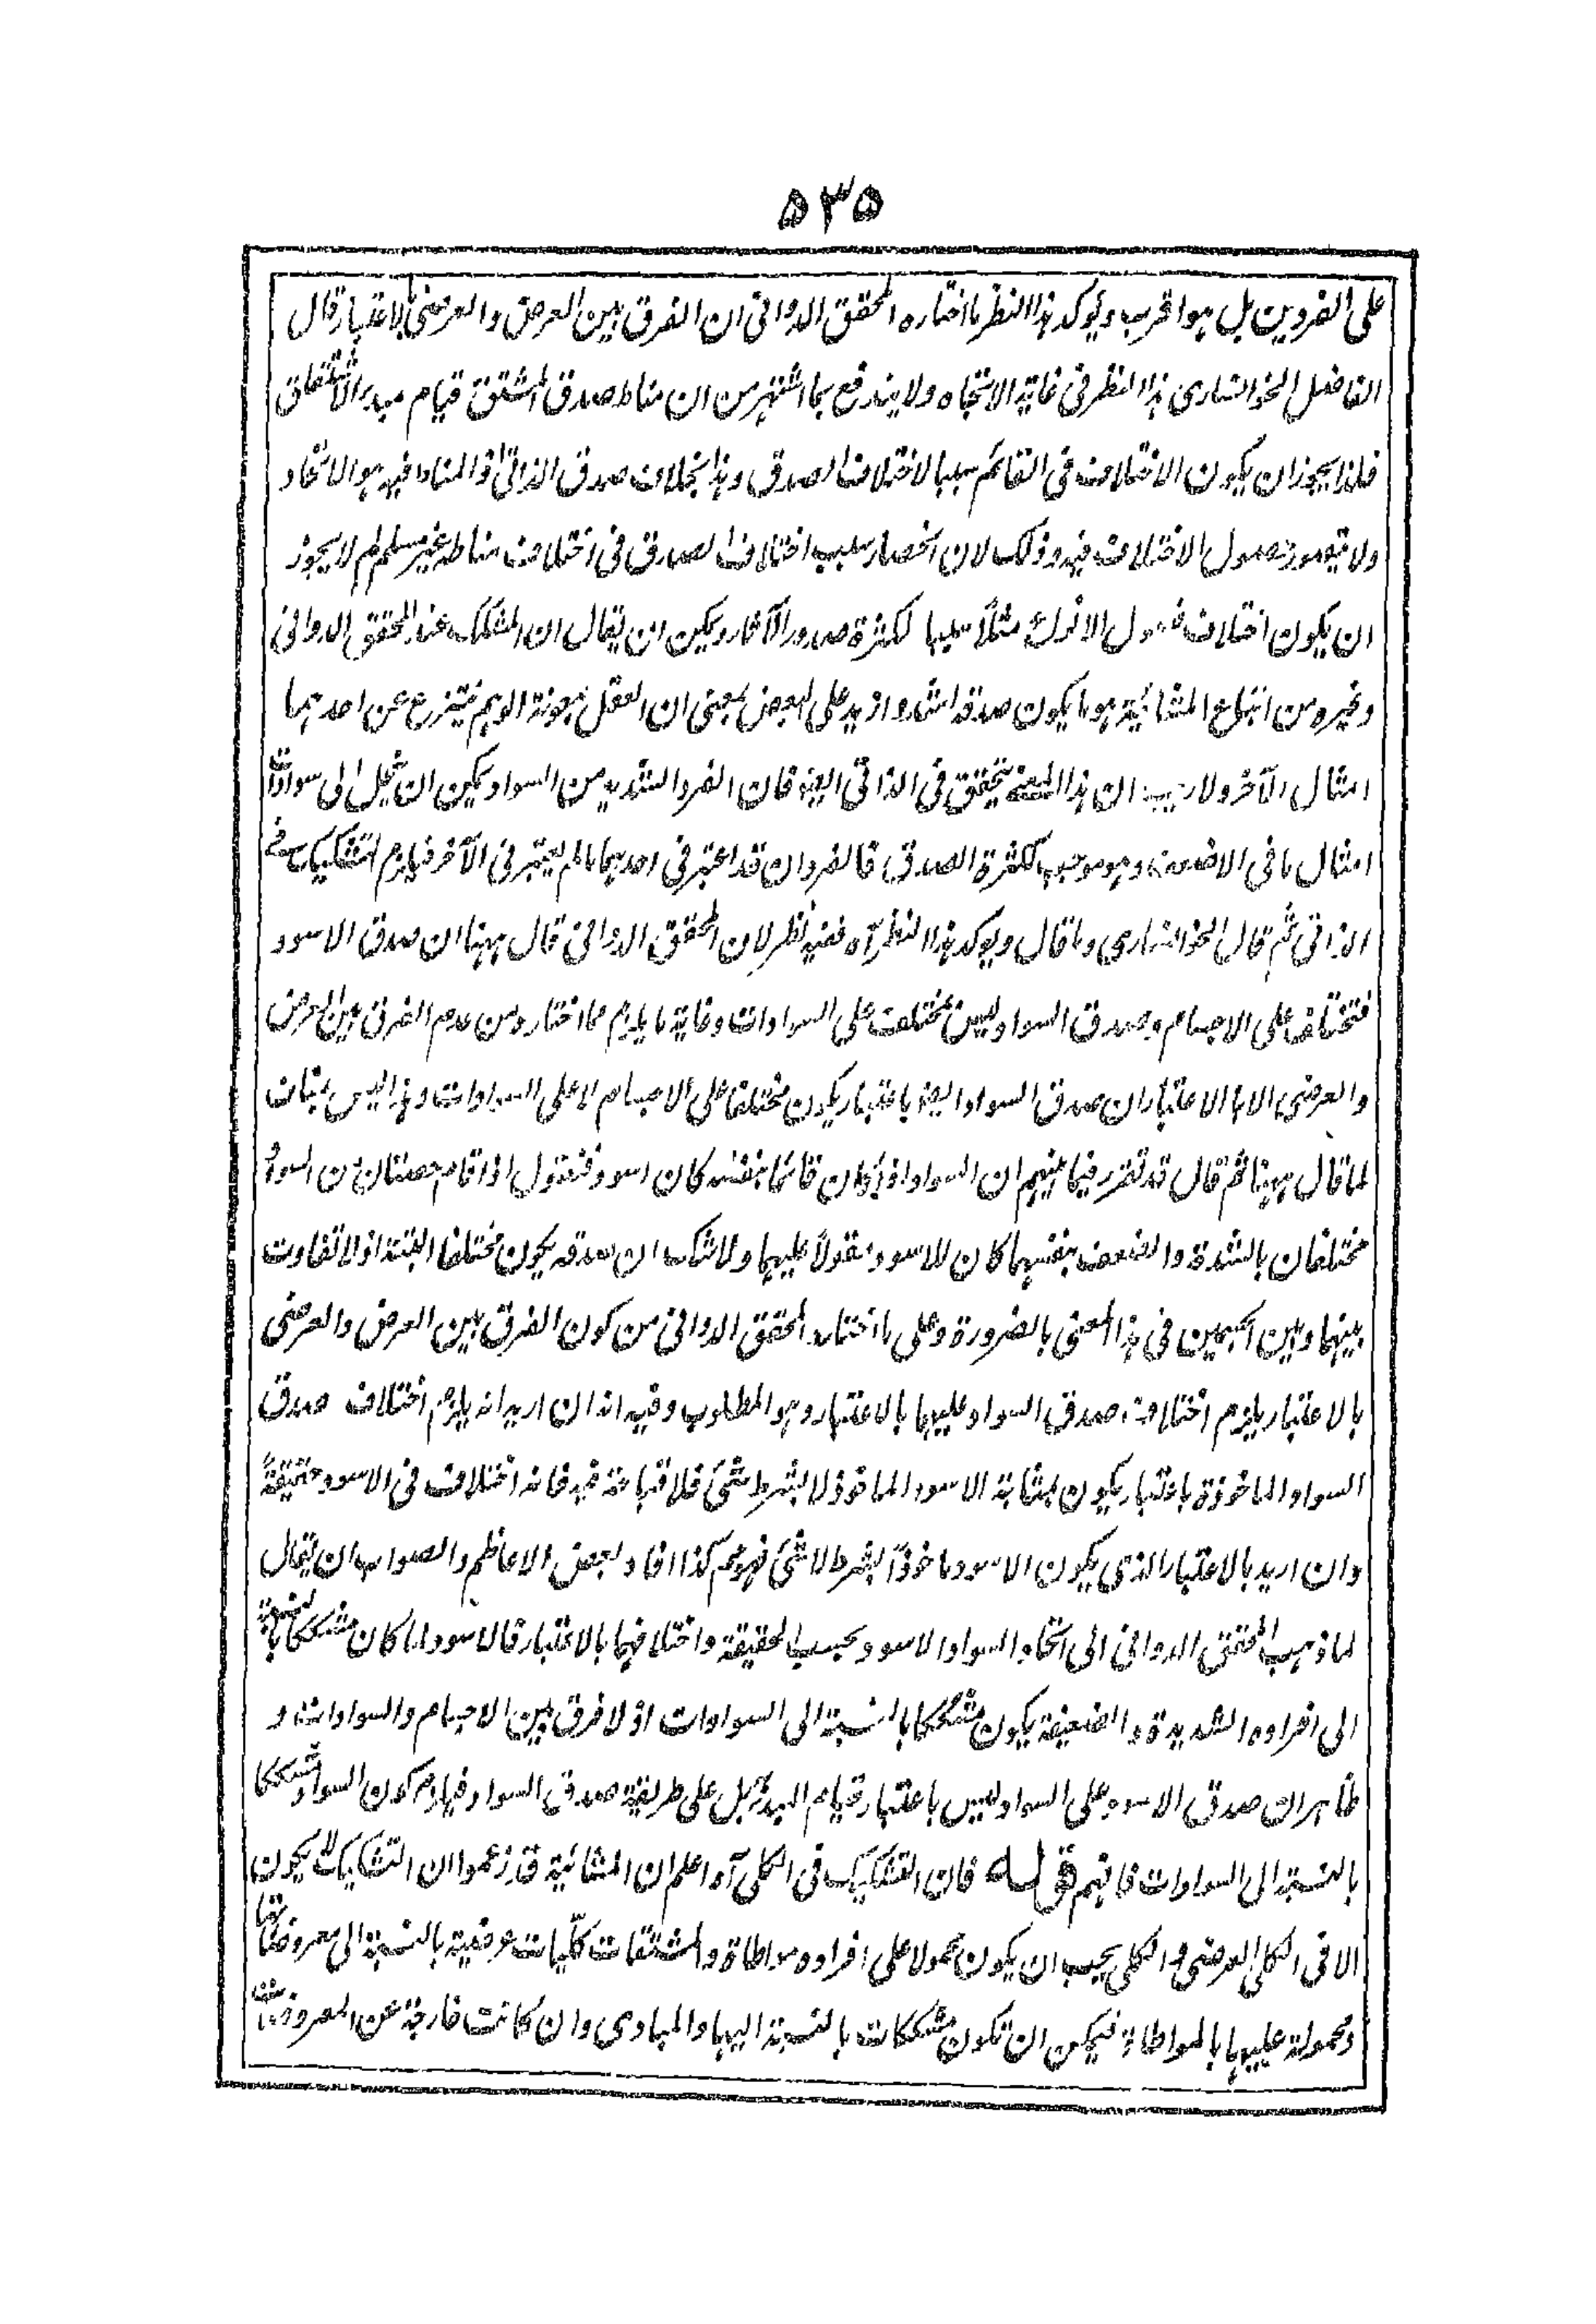 ۵۳۵
على الفردين بل هو اقرب ويؤكد هذا النظر ما اختاره المحقق الدوانى ان الفرق بين العرض والعرضى بالاعتبار قال
الفاضل الخوانسارى هذا النظر فى غاية الاتجاه ولا يندفع بما اشتهر من ان مناط صدق المشتق قيام مبدء الاشتقاق
فلذا يجوز ان يكون الاختلاف فى القائم سببا لاختلاف الصدق وهذا بخلاف صدق الذاتى اذ المناط فيه هو الاتحاد
ولا يتصور حصول الاختلاف فيه وذلك لان انحصار سبب اختلاف الصدق فى اختلاف مناطه غير مسلم لم لا يجوز
ان يكون اختلاف مثلاً سببا لكثرة صدور الآثار ويمكن ان يقال ان المشكك عند المحقق الدوانى
وغيره من اتباع المشائية هو ما يكون صدقه اشد وازيد على البعض بمعنى ان العقل بمعونة الوهم ينتزع عن احدهما
امثال الآخر ولا ريب ان هذا المعنى يتحقق فى الذاتى ايضا فان الفرد الشديد من السواد يمكن ان يحلل الى سوادات
امثال ما فى الاضعف وهو موجب لكثرة الصدق فالفردان قد اعتبر فى احدهما ما لم يعتبر فى الآخر فيلزم التشكيك فى
الذاتى ثم قال الخوانسارى وما قال ويؤكد هذا النظر آه ففيه نظر لان المحقق الدوانى قال ههنا ان صدق الاسود
مختلف على الاجسام وصدق السواد ليس بمختلف على السوادات وغاية ما يلزم مما اختاره من عدم الفرق بين العرض
والعرضى الا بالاعتبار ان صدق السواد ايضا باعتبار يكون مختلفا على الاجسام لا على السوادات وهذا ليس بمناف
لما قال ههنا ثم قال قد تقرر فيما بينهم ان السواد اذا كان قائما بنفسه كان اسود فنقول اذا قام حصتان من السواد
مختلفان بالشدة والضعف بنفسهما كان للاسود مقولاً عليهما ولا شك ان صدقه يكون مختلفا البتة اذ لا تفاوت
بينهما وبين الجسمين فى هذا المعنى بالضرورة وعلى ما اختاره المحقق الدوانى من كون الفرق بين العرض والعرضى
بالاعتبار يلزم اختلاف صدق السواد عليهما بالاعتبار وهو المطلوب وفيه انه ان اريد انه يلزم اختلاف صدق
السواد الماخوذة باعتبار يكون بمثابة الاسود الماخوذ لا بشرط شئ فلا قباحة فيه فانه اختلاف فى الاسود حقيقةً
وان اريد بالاعتبار الذى يكون الاسود ماخوذاً بشرط لا شئ فهو مم كذا افاد بعض الاعاظم والصواب ان يقال
لما ذهب المحقق الدوانى الى اتحاد السواد والاسود بحسب الحقيقة واختلافهما بالاعتبار فالاسود لما كان مشككا بالنسبة
الى افراده الشديدة والضعيفة يكون مشككا بالنسبة الى السوادات اذ لا فرق بين الاجسام والسوادات و
ظاهر ان صدق الاسود على السواد ليس باعتبار قيام المبدء بل على طريقة صدق السواد فيلزم كون السواد مشككا
بالنسبة الى السوادات فافهم قوله فان التشكيك فى الكلى آه اعلم ان المشائية قد زعموا ان التشكيك لا يكون
الا فى الكلى العرضى والكلى يجب ان يكون محمولا على افراده مواطاة والمشتقات كلّيات عرضية بالنسبة الى معروضاتها
ومحمولة عليها بالمواطاة فيمكن ان تكون مشككات بالنسبة اليها والمبادى وان كانت خارجة عن المعروضات